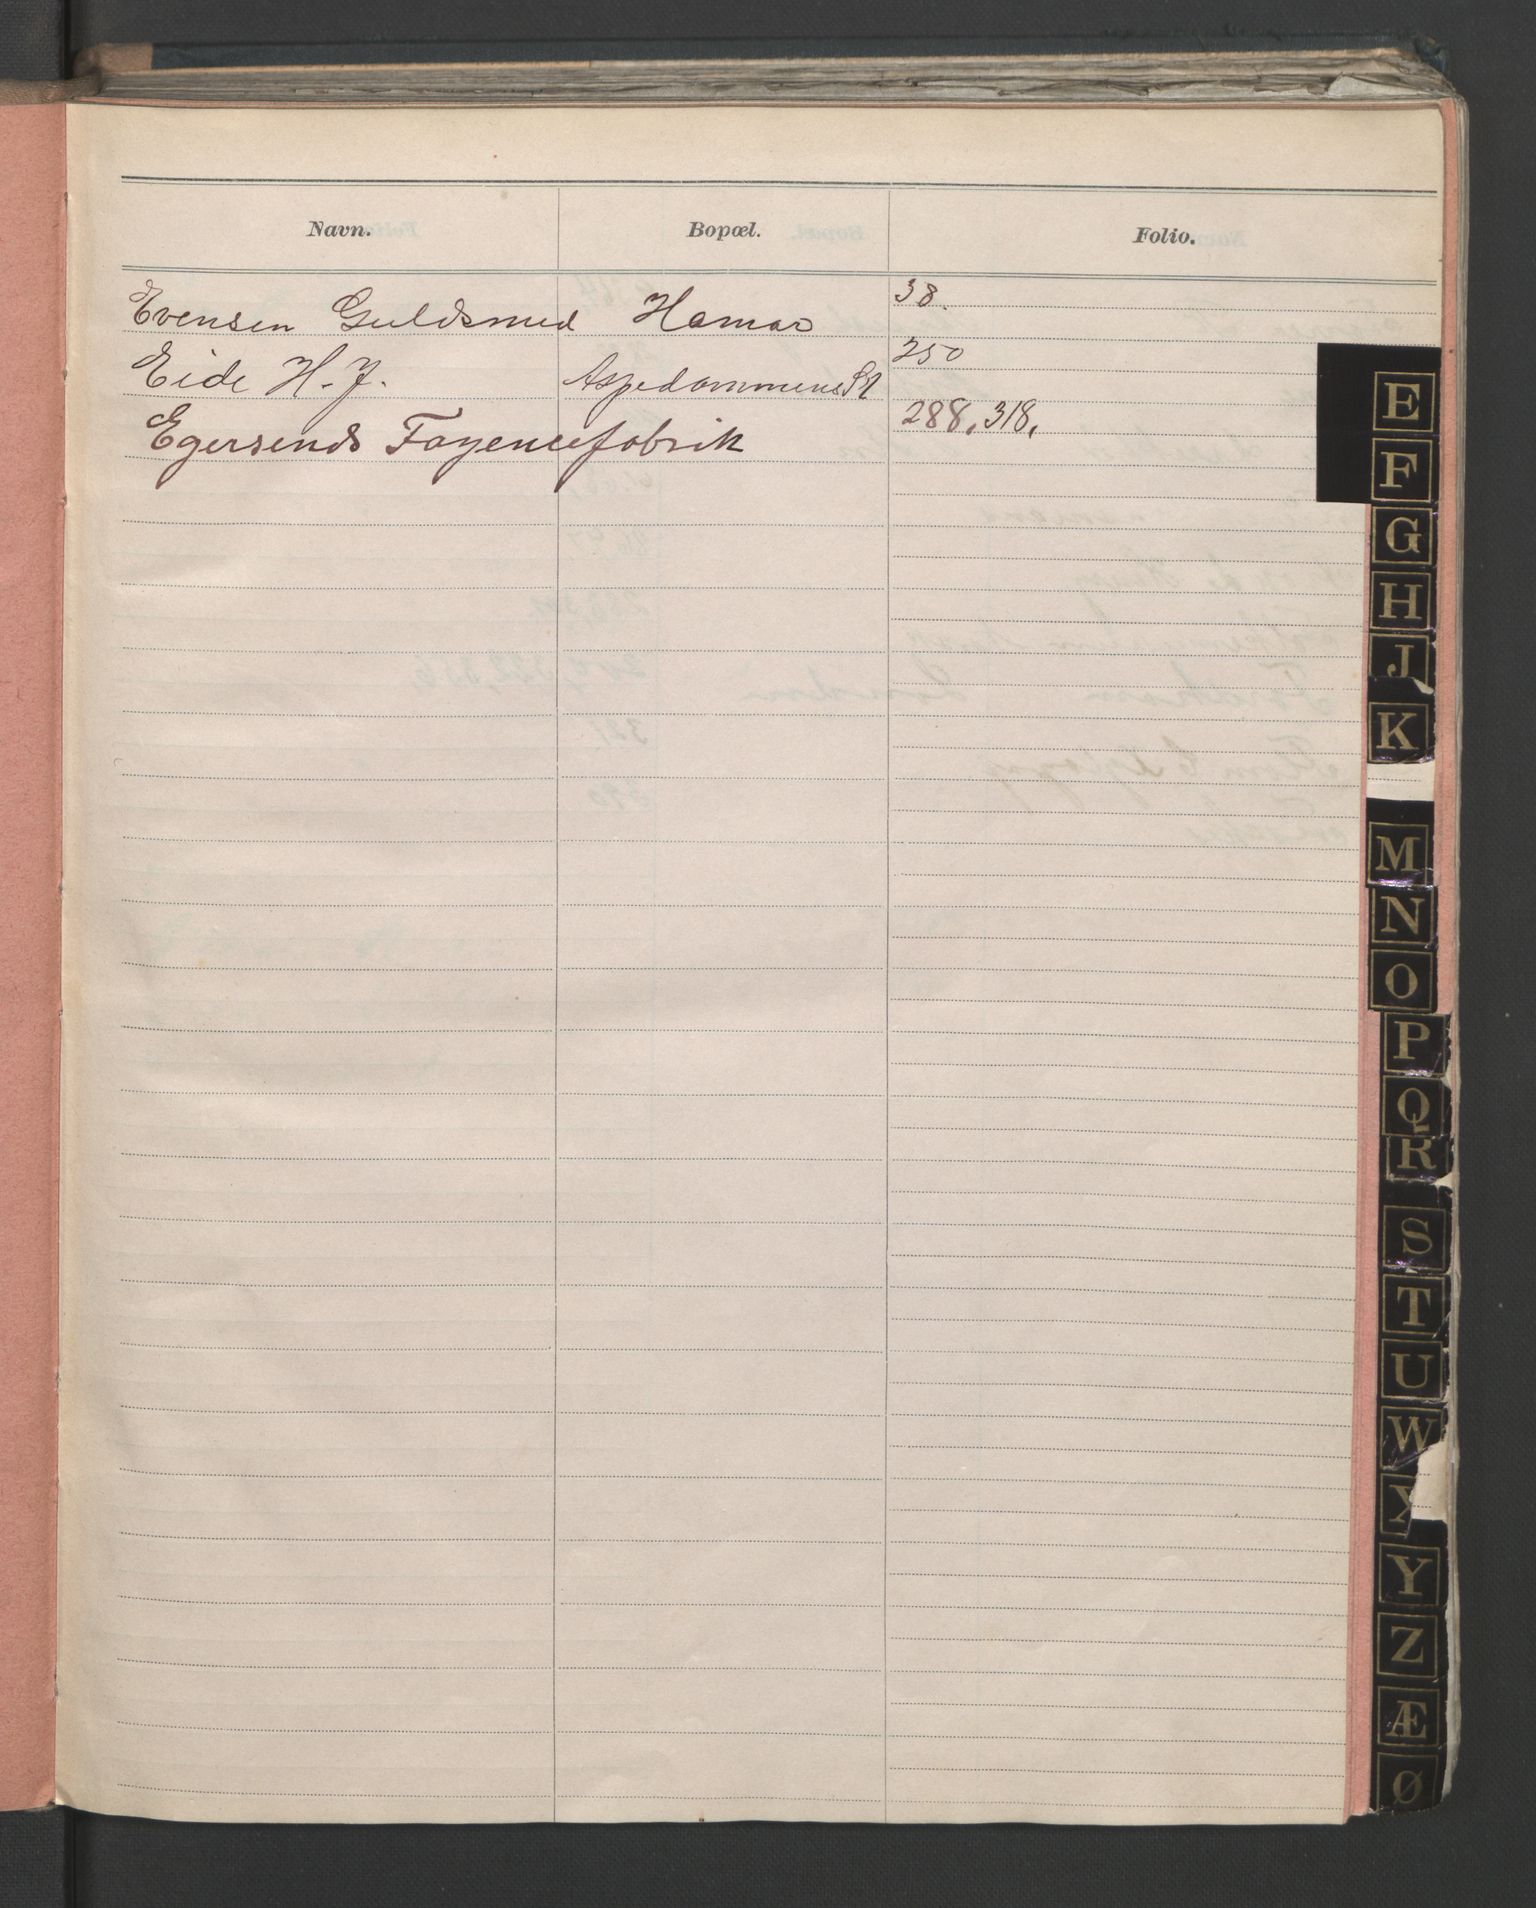 Navn. Bopæl. Folio.
Evensen Guldsmed Hamar 38.
Eide H. J. Aspedammens St 250
Egersunds Fayencefabrik 288, 318,
E
F
G
H
J
K
M
N
O
P
Q
R
S
T
U
W
X
Y
Z
Æ
Ø